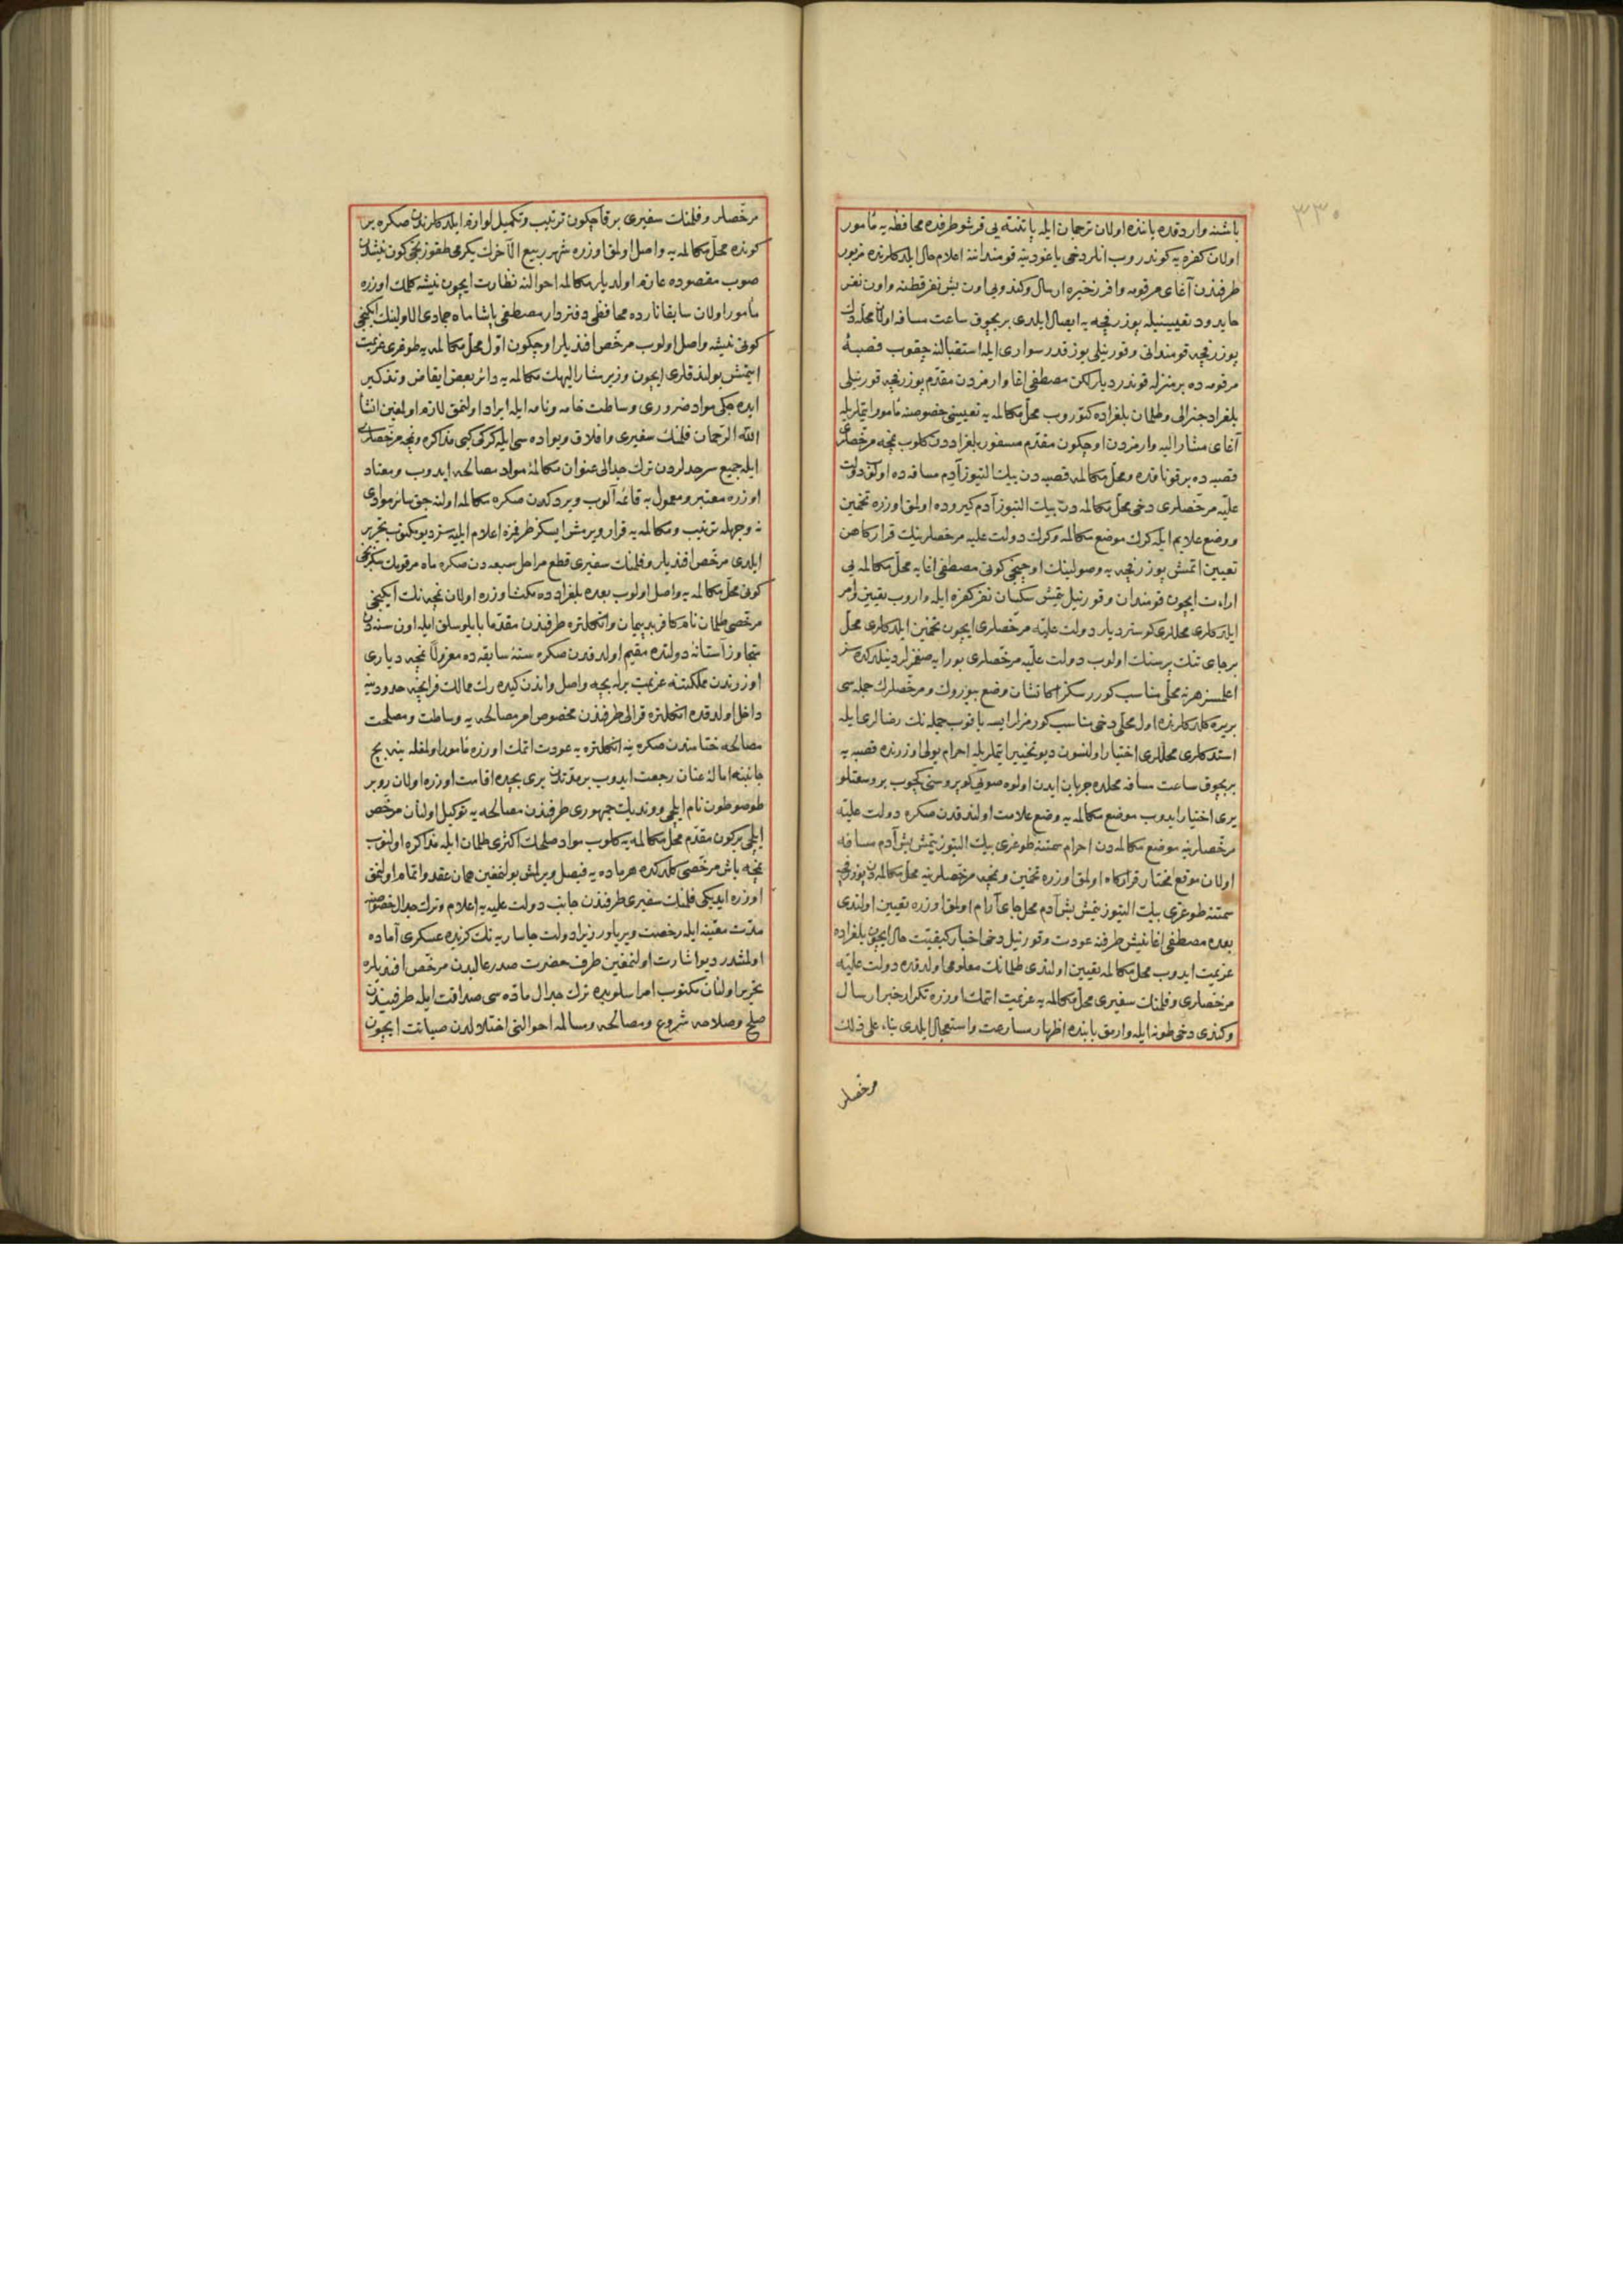 ٣٣٠
باشنه واردقده یاننده اولان ترجمان ایله پاتنته یی قرشو طرفده محافظه یه مأمور
اولان کفره یه کوندروب انلر دخی یاغودینه قومنداننه اعلام حال ایلدکلرنده مزبور
طرفندن آغای مرقومه وافر ذخیره ارسال وکندویی اون بش نفر قطنه واون نفر
حایدود تعیینیله پوزرفجه یه ایصال ایلدی بربچوق ساعت مسافه اولان محلدن
پوزرفجه قومندانی وقورنیلی یوز قدر سواری ایله استقبالنه چقوب قصبهٔ
مرقومه ده بر منزله قوندردیلر لکن مصطفی اغا وارمزدن مقدم پوزرفجه قورنیلی
بلغراد جنرالی وطلمان بلغراده کتوروب محل مکالمه یه تعیینی خصوصنه مأمور ایتملریله
آغای مشار الیه وارمزدن اوچکون مقدم مسفور بلغراددن کلوب نمچه مرخصلری
قصبه ده بر قوناقده ومحل مکالمه قصبه دن بیك التیوز آدم مسافه ده اولمق دولت
علیه مرخصلری دخی محل مکالمه دن بیك التیوز آدم کیروده اولمق اوزره تخمین
ووضع علایم ایله کرك موضع مکالمه وکرك دولت علیه مرخصلرینك قرارکاهن
تعیین اتمش پوزرفجه یه وصولینك اوچنجی کونی مصطفی اغایه محل مکالمه یی
اراءت ایچون قومندان وقورنیل یتمش سکسان نفر کفره ایله واروب تعیین وامر
ایلدکلری محللری کوستردیلر دولت علیه مرخصلری ایچون تخمین ایلدکلری محل
بر جای تنك برسنك اولوب دولت علیه مرخصلری بورایه صغمزلر دینلدکده سز
اعلمسز هر نه محلی مناسب کوررسکز اکا نشان وضع بیورك ومرخصلرك جمله سی
بریره کلدکلرنده اول محلی دخی مناسب کورمزلر ایسه یاقوب جمله نك رضالری ایله
استدکلری محللری اختیار اولنسون دیو تخییر ایتملریله احرام یولی اوزرنده قصبه یه
بربچوق ساعت مسافه محلده جریان ایدن اولوه صویی کوپروسنی کچوب بر وسعتلو
یری اختیار ایدوب موضع مکالمه یه وضع علامت اولندقدن صکره دولت علیه
مرخصلرینه موضع مکالمه دن احرام سمتنه طوغری بیك التیوز یتمش بش آدم مسافه
اولان موقع مختار قرارکاه اولمق اوزره تخمین ونمچه مرخصلرینه محل مکالمه دن پوزرفجه
سمتنه طوغری بیك التیوز یتمش بش آدم محل جای آرام اولمق اوزره تعیین اولندی
بعده مصطفی اغا نیش طرفنه عودت وقورنیل دخی اخبار کیفیت حال ایچون بلغراده
عزیمت ایدوب محل مکالمه تعیین اولندی طلمانك معلومی اولدقده دولت علیه
مرخصلری وفلمنك سفیری محل مکالمه یه عزیمت اتمك اوزره تکرار خبر ارسال
وکندی دخی طونه ایله وارمق بابنده اظهار مسارعت واستعجال ایلدی بناء علی ذلك
مرخصلر
مرخصلر وفلمنك سفیری بر قاچکون ترتیب وتکمیل لوازم ایلدکلرندن صکره بر
کونده محل مکالمه یه واصل اولمق اوزره شهر ربیع الآخرك یکرمی طقوزنجی کون نیشدن
صوب مقصوده عازم اولدیلر مکالمه احوالنه نظارت ایچون نیشه کلمك اوزره
مأمور اولان سابقا نارده محافظی دفتردار مصطفی پاشا ماه جمادی الاولینك ایکنجی
کونی نیشه واصل اولوب مرخص افندیلر اوچکون اول محل مکالمه یه طوغری عزیمت
ایتمش بولندقلری ایچون وزیر مشار الیهك مکالمه یه دائر بعض ایقاض وتذکیر
ایده جکی مواد ضروری وساطت خامه ونامه ایله ایراد اولنمق لازم اولمغین انشا
الله الرحمان فلمنك سفیری وافلاق وبواده سی ایله کرکی کبی مذاکره ونمچه مرخصلری
ایله جمیع سرحدلردن ترك جدالی عنوان مکالمهٔ مواد مصالحه ایدوب ومعتاد
اوزره معتبر ومعمول به قائمه آلوب ویردکدن صکره مکالمه اولنه جق سائر موادی
نه وجهله ترتیب ومکالمه یه قرار ویرمش ایسکز طرفمزه اعلام ایلیه سز دیو مکتوب تحریر
ایلدی مرخص افندیلر وفلمنك سفیری قطع مراحل سبعه دن صکره ماه مرقومك سکزنجی
کونی محل مکالمه یه واصل اولوب بعده بلغراده مکث اوزره اولان نمچه نك ایکنجی
مرخصی طلمان نام کافر بدپیمان وانکلتره طرفندن مقدما بایلوسلق ایله اون سنه دن
متجاوز آستانهٔ دولتده مقیم اولدقدن صکره سنهٔ سابقه ده معزولا نمچه دیاری
اوزرندن مملکتنه عزیمت برله بچه واصل واندن کیدرك ممالك فرانچه حدودینه
داخل اولدقده انکلتره قرالی طرفندن مخصوص امر مصالحه یه وساطت ومصلحت
مصالحه ختامندن صکره ینه انکلتره یه عودت اتمك اوزره مأمور اولمغله ینه بچ
جانبنه امالهٔ عنان رجعت ایدوب بر مدتدن بری بچده اقامت اوزره اولان روبر
طوصوطون نام ایلچی وونديك جمهوری طرفندن مصالحه یه توکیل اولنان مرخص
ایلچی برکون مقدم محل مکالمه یه کلوب مواد صلحك اکثری طلمان ایله مذاکره اولنوب
نمچه باش مرخصی کلدکده هر ماده یه فیصل ویرلمش بولنمغین همان عقد واتمام اولنمق
اوزره ایدیکی فلمنك سفیری طرفندن جانب دولت علیه یه اعلام وترك جدال خصوصنه
مدت معینه ایله رخصت ویریلور زیرا دولت جاساریه نك کرنده عسکری آماده
اولمشدر دیو اشارت اولنمغین طرف حضرت صدر عالیدن مرخص افندیلره
تحریر اولنان مکتوب امر اسلوبده ترك جدال ماده سی صداقت ایله طرفیندن
صلح وصلاحه شروع ومصالحه ومسالمه احوالنی اختلالدن صیانت ایچون